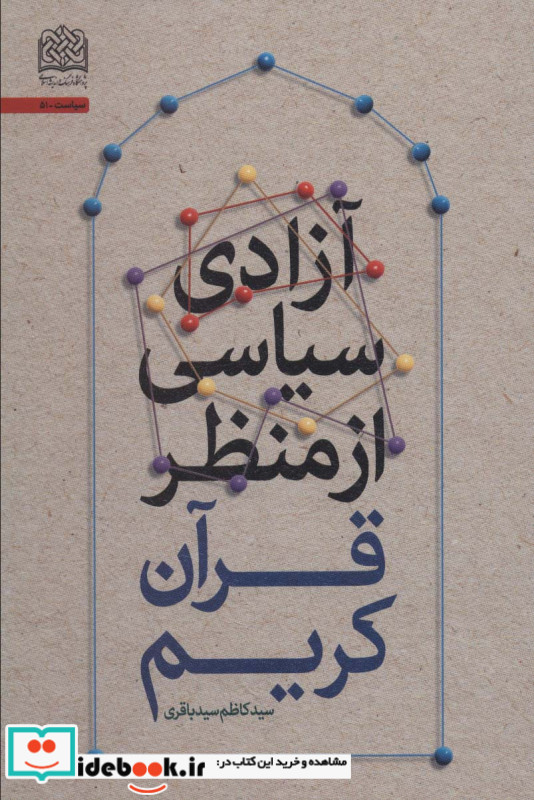 پژوهشگاه فرهنگ و اندیشه اسلامی
سیاست-۵۱
آزادی
سیاسی
از منظر
قرآن
کریم
سید کاظم سید باقری
مشاهده و خرید این کتاب در:
idebook.ir